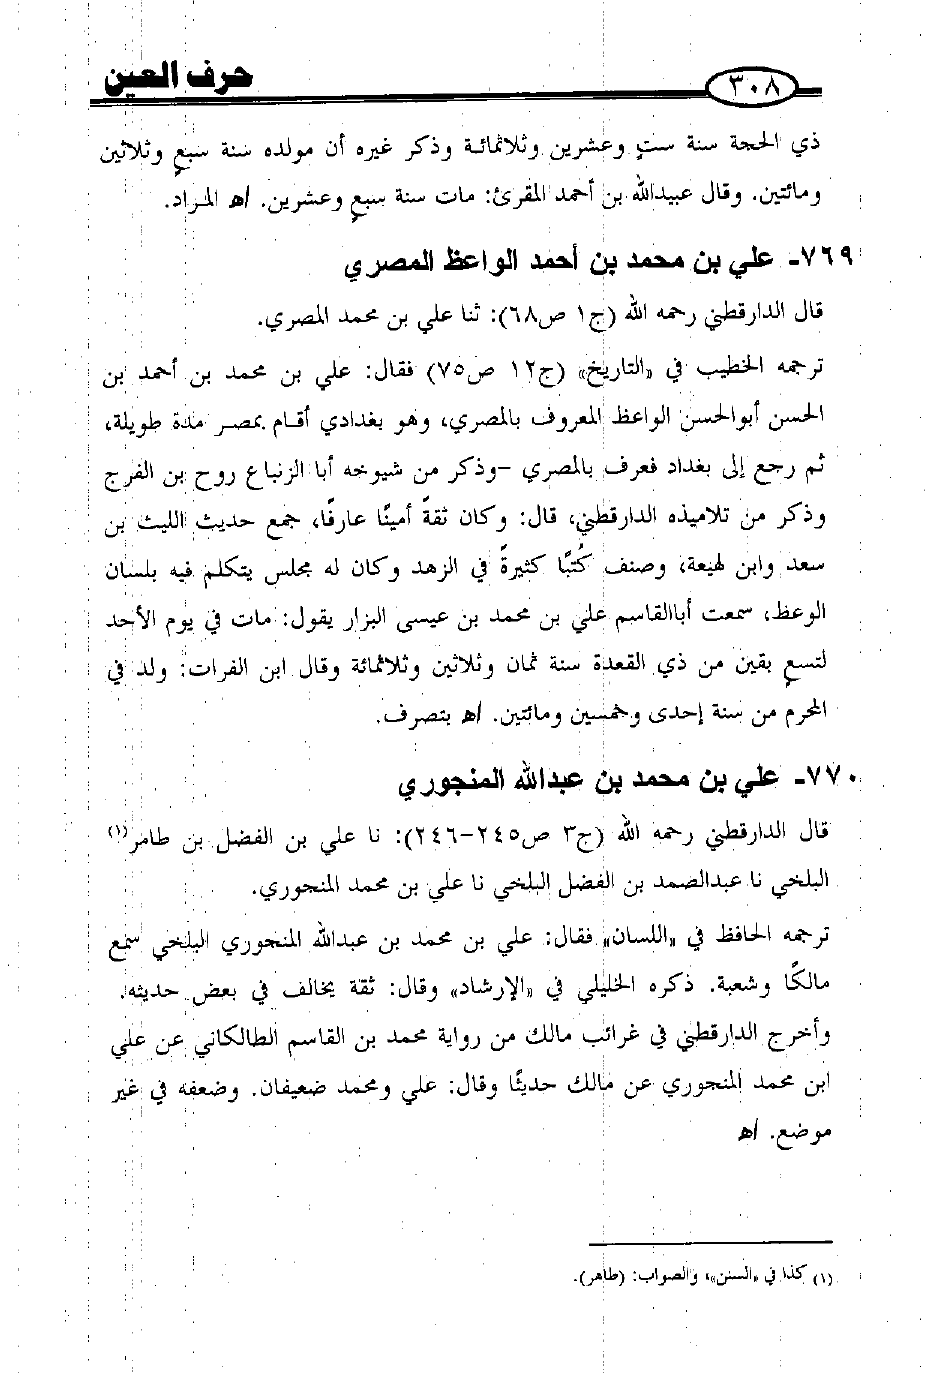 حرف العين
٣٠٨
ذي الحجة سنة ستٍ وعشرين وثلاثمائة وذكر غيره أن مولده سنة سبعٍ وثلاثين
ومائتين. وقال عبيدالله بن أحمد المقرئ: مات سنة سبعٍ وعشرين. اﻫ المراد.
٧٦٩- علي بن محمد بن أحمد الواعظ المصري
قال الدارقطني رحمه الله (ج١ ص٦٨): ثنا علي بن محمد المصري.
ترجمه الخطيب في «التاريخ» (ج١٢ ص٧٥) فقال: علي بن محمد بن أحمد بن
الحسن أبوالحسن الواعظ المعروف بالمصري، وهو بغدادي أقام بمصر مدة طويلة،
ثم رجع إلى بغداد فعرف بالمصري -وذكر من شيوخه أبا الزنباع روح بن الفرج
وذكر من تلاميذه الدارقطني، قال: وكان ثقةً أمينًا عارفًا، جمع حديث الليث بن
سعد وابن لهيعة، وصنف كُتبًا كثيرةً في الزهد وكان له مجلس يتكلم فيه بلسان
الوعظ، سمعت أباالقاسم علي بن محمد بن عيسى البزار يقول: مات في يوم الأحد
لتسعٍ بقين من ذي القعدة سنة ثمان وثلاثين وثلاثمائة وقال ابن الفرات: ولد في
المحرم من سنة إحدى وخمسين ومائتين. اﻫ بتصرف.
٧٧٠- علي بن محمد بن عبدالله المنجوري
قال الدارقطني رحمه الله (ج٣ ص٢٤٥-٢٤٦): نا علي بن الفضل بن طامر(١)
البلخي نا عبدالصمد بن الفضل البلخي نا علي بن محمد المنجوري.
ترجمه الحافظ في «اللسان» فقال: علي بن محمد بن عبدالله المنجوري البلخي سمع
مالكًا وشعبة. ذكره الخليلي في «الإرشاد» وقال: ثقة يخالف في بعض حديثه.
وأخرج الدارقطني في غرائب مالك من رواية محمد بن القاسم الطالكاني عن علي
ابن محمد المنجوري عن مالك حديثًا وقال: علي ومحمد ضعيفان. وضعفه في غير
موضع. اﻫ
(١) كذا في «السنن»، والصواب: (طاهر).